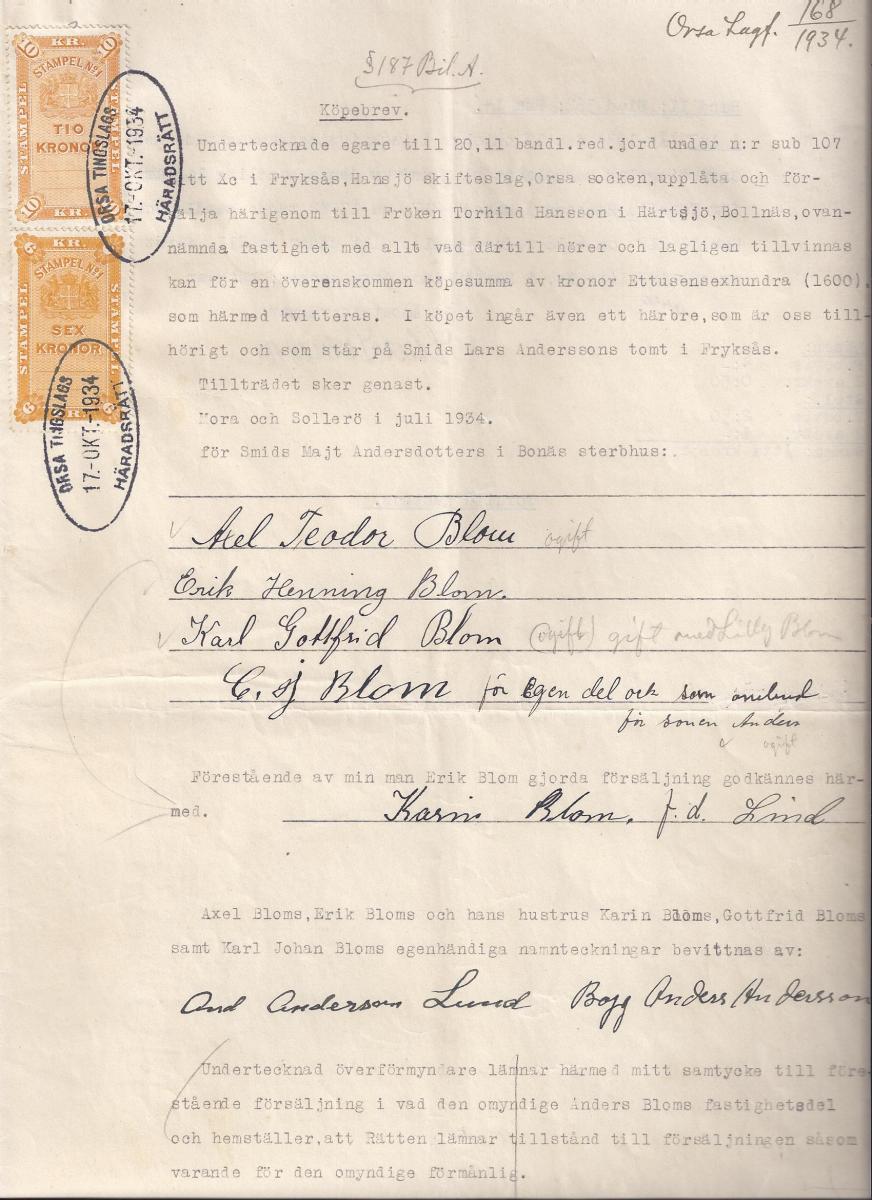 Orsa Lagf. 168/1934.
§187 Bil. A.
10 KR. 10
STAMPEL No1
STAMPEL
STAMPEL
TIO
KRONOR
10 KR. 10
ORSA TINGSLAGS
17.-OKT.-1934
HÄRADSRÄTT
6 KR. 6
STAMPEL No1
STAMPEL
STAMPEL
SEX
KRONOR
6 KR. 6
ORSA TINGSLAGS
17.-OKT.-1934
HÄRADSRÄTT
Köpebrev.
Undertecknade egare till 20,11 bandl.red.jord under n:r sub 107
itt Xc i Fryksås,Hansjö skifteslag,Orsa socken,upplåta och för-
älja härigenom till Fröken Torhild Hansson i Härtsjö,Bollnäs,ovan-
nämnda fastighet med allt vad därtill hörer och lagligen tillvinnas
kan för en överenskommen köpesumma av kronor Ettusensexhundra (1600),
som härmed kvitteras. I köpet ingår även ett härbre,som är oss till-
hörigt och som står på Smids Lars Anderssons tomt i Fryksås.
Tillträdet sker genast.
Mora och Sollerö i juli 1934.
för Smids Majt Andersdotters i Bonäs sterbhus:
Axel Teodor Blom ogift
Erik Henning Blom.
Karl Gottfrid Blom (ogift) gift med Lilly Blom
C. J Blom för Egen del ock som ombud
för sonen Anders
ogift
Förestående av min man Erik Blom gjorda försäljning godkännes här-
med. Karin Blom. f.d. Lind
Axel Bloms,Erik Bloms och hans hustrus Karin Bloms,Gottfrid Bloms
samt Karl Johan Bloms egenhändiga namnteckningar bevittnas av:
And Anderson Lund Bogg Anders Andersson
Undertecknad överförmyndare lämnar härmed mitt samtycke till före-
stående försäljning i vad den omyndige Anders Bloms fastighetsdel
och hemställer,att Rätten lämnar tillstånd till försäljningen såsom
varande för den omyndige förmånlig.